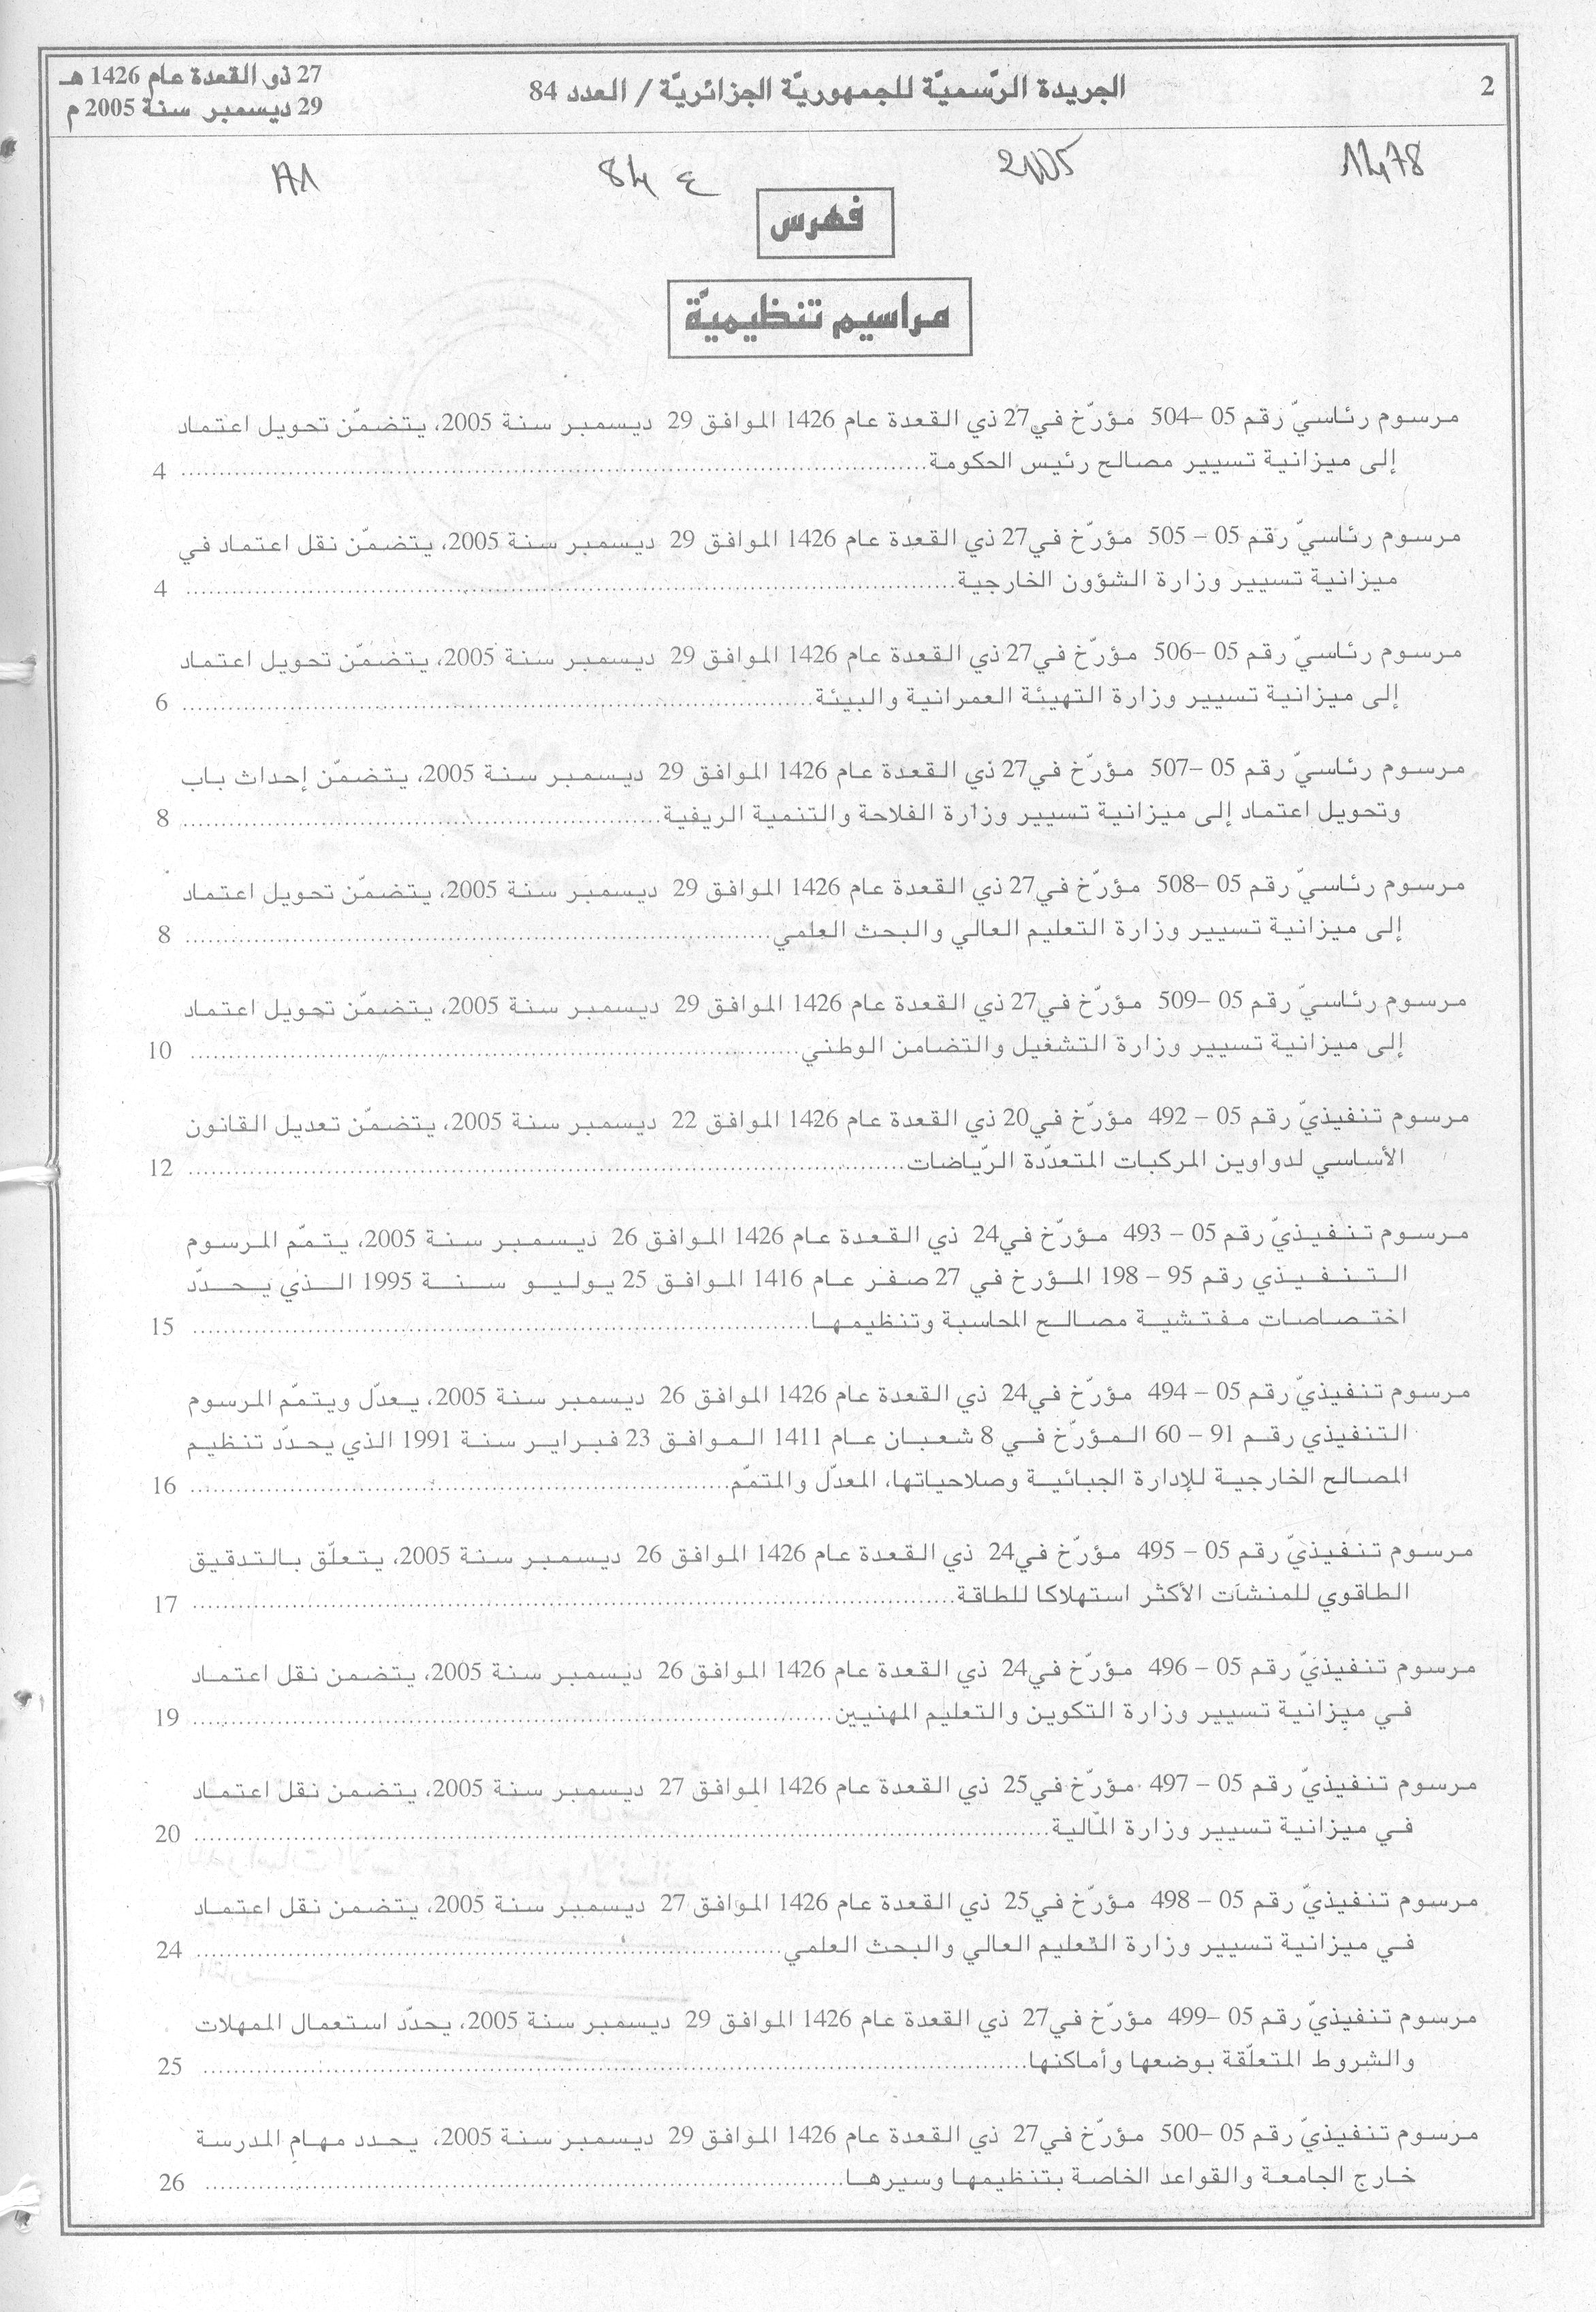 2
الجريدة الرّسميّة للجمهوريّة الجزائريّة / العدد 84
27 ذو القعدة عام 1426 هـ
29 ديسمبر سنة 2005 م
1478
2005
84 ع
A1
فهرس
مراسيم تنظيميّة
مرسوم رئاسيّ رقم 05 –504 مؤرّخ في27 ذي القعدة عام 1426 الموافق 29 ديسمبر سنة 2005، يتضمّن تحويل اعتماد
إلى ميزانية تسيير مصالح رئيس الحكومة.................... 4
مرسوم رئاسيّ رقم 05 – 505 مؤرّخ في27 ذي القعدة عام 1426 الموافق 29 ديسمبر سنة 2005، يتضمّن نقل اعتماد في
ميزانية تسيير وزارة الشؤون الخارجية.................... 4
مرسوم رئاسيّ رقم 05 –506 مؤرّخ في27 ذي القعدة عام 1426 الموافق 29 ديسمبر سنة 2005، يتضمّن تحويل اعتماد
إلى ميزانية تسيير وزارة التهيئة العمرانية والبيئة.................... 6
مرسوم رئاسيّ رقم 05 –507 مؤرّخ في27 ذي القعدة عام 1426 الموافق 29 ديسمبر سنة 2005، يتضمّن إحداث باب
وتحويل اعتماد إلى ميزانية تسيير وزارة الفلاحة والتنمية الريفية.................... 8
مرسوم رئاسيّ رقم 05 –508 مؤرّخ في27 ذي القعدة عام 1426 الموافق 29 ديسمبر سنة 2005، يتضمّن تحويل اعتماد
إلى ميزانية تسيير وزارة التعليم العالي والبحث العلمي.................... 8
مرسوم رئاسيّ رقم 05 –509 مؤرّخ في27 ذي القعدة عام 1426 الموافق 29 ديسمبر سنة 2005، يتضمّن تحويل اعتماد
إلى ميزانية تسيير وزارة التشغيل والتضامن الوطني.................... 10
مرسوم تنفيذيّ رقم 05 – 492 مؤرّخ في20 ذي القعدة عام 1426 الموافق 22 ديسمبر سنة 2005، يتضمّن تعديل القانون
الأساسي لدواوين المركبات المتعدّدة الرّياضات.................... 12
مرسوم تنفيذيّ رقم 05 – 493 مؤرّخ في24 ذي القعدة عام 1426 الموافق 26 ديسمبر سنة 2005، يتمّم المرسوم
التنفيذي رقم 95 – 198 المؤرخ في 27 صفر عام 1416 الموافق 25 يوليو سنة 1995 الذي يحدّد
اختصاصات مفتشية مصالح المحاسبة وتنظيمها.................... 15
مرسوم تنفيذيّ رقم 05 – 494 مؤرّخ في24 ذي القعدة عام 1426 الموافق 26 ديسمبر سنة 2005، يعدّل ويتمّم المرسوم
التنفيذي رقم 91 – 60 المؤرّخ في 8 شعبان عام 1411 الموافق 23 فبراير سنة 1991 الذي يحدّد تنظيم
المصالح الخارجية للإدارة الجبائية وصلاحياتها، المعدّل والمتمّم.................... 16
مرسوم تنفيذيّ رقم 05 – 495 مؤرّخ في24 ذي القعدة عام 1426 الموافق 26 ديسمبر سنة 2005، يتعلّق بالتدقيق
الطاقوي للمنشآت الأكثر استهلاكا للطاقة.................... 17
مرسوم تنفيذيّ رقم 05 – 496 مؤرّخ في24 ذي القعدة عام 1426 الموافق 26 ديسمبر سنة 2005، يتضمن نقل اعتماد
في ميزانية تسيير وزارة التكوين والتعليم المهنيين.................... 19
مرسوم تنفيذيّ رقم 05 – 497 مؤرّخ في25 ذي القعدة عام 1426 الموافق 27 ديسمبر سنة 2005، يتضمن نقل اعتماد
في ميزانية تسيير وزارة المالية.................... 20
مرسوم تنفيذيّ رقم 05 – 498 مؤرّخ في25 ذي القعدة عام 1426 الموافق 27 ديسمبر سنة 2005، يتضمن نقل اعتماد
في ميزانية تسيير وزارة التعليم العالي والبحث العلمي.................... 24
مرسوم تنفيذيّ رقم 05 –499 مؤرّخ في27 ذي القعدة عام 1426 الموافق 29 ديسمبر سنة 2005، يحدّد استعمال الممهلات
والشروط المتعلّقة بوضعها وأماكنها.................... 25
مرسوم تنفيذيّ رقم 05 –500 مؤرّخ في27 ذي القعدة عام 1426 الموافق 29 ديسمبر سنة 2005، يحدد مهام المدرسة
خارج الجامعة والقواعد الخاصة بتنظيمها وسيرها.................... 26